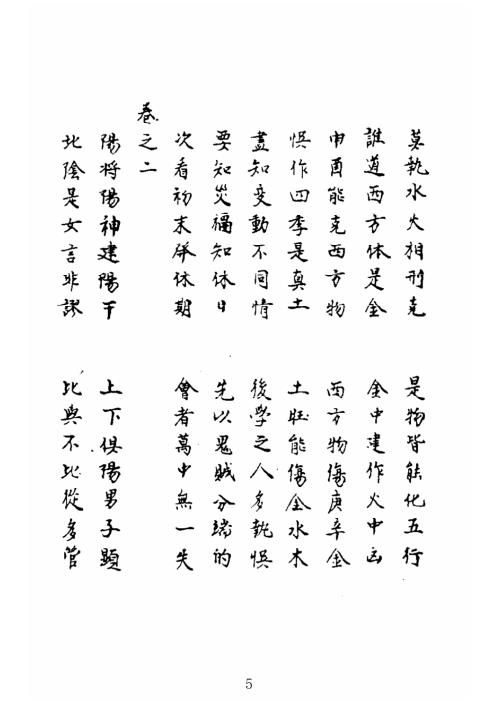 莫執水火相刑克　是物皆能化五行
誰道西方休是金　金中建作火中凶
申酉能克西方物　西方物傷庚辛金
悞作四季是真土　土旺能傷金水木
盡知变動不同情　後学之人多執悞
要知災福知休日　先以鬼賊分端的
次看初末併休期　會者萬中無一失
卷之二
陽将陽神建陽干　上下俱陽男子顕
比陰是女言非謬　比與不比從多管
5